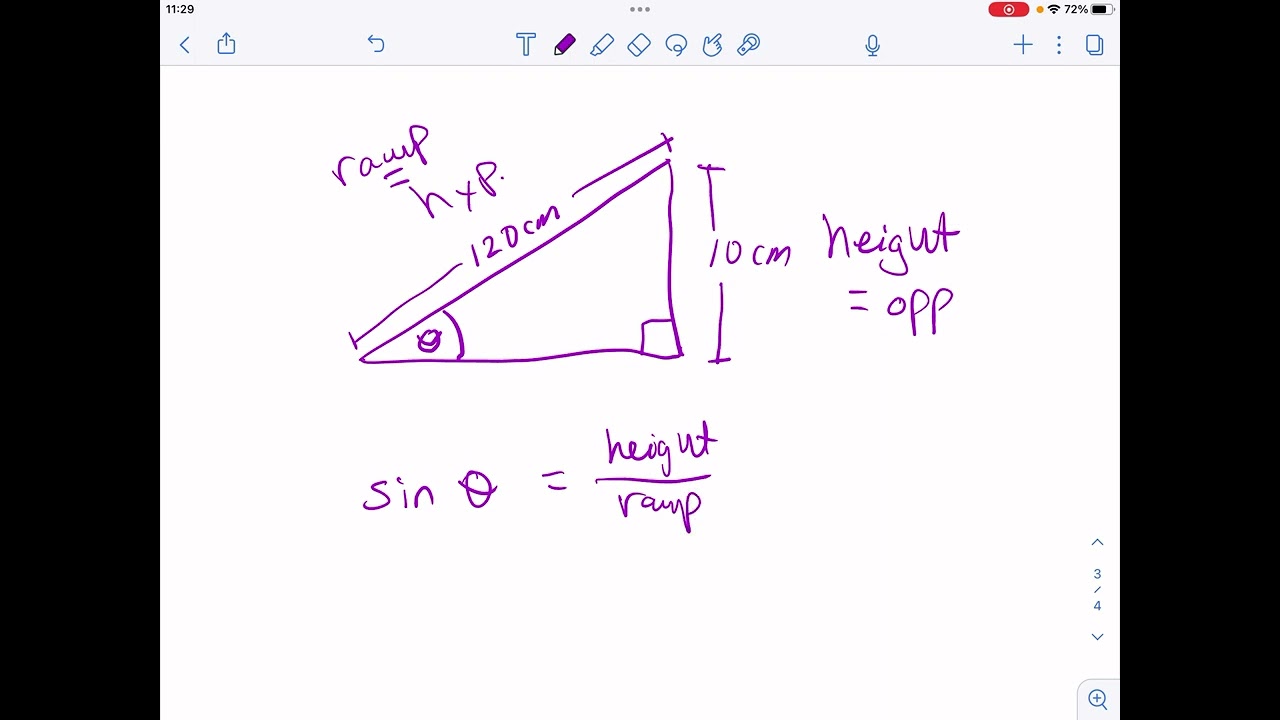 11:29
72%
T
ramp
= hyp.
120cm
10cm
height
= opp
θ
sin θ = height
ramp
3
/
4